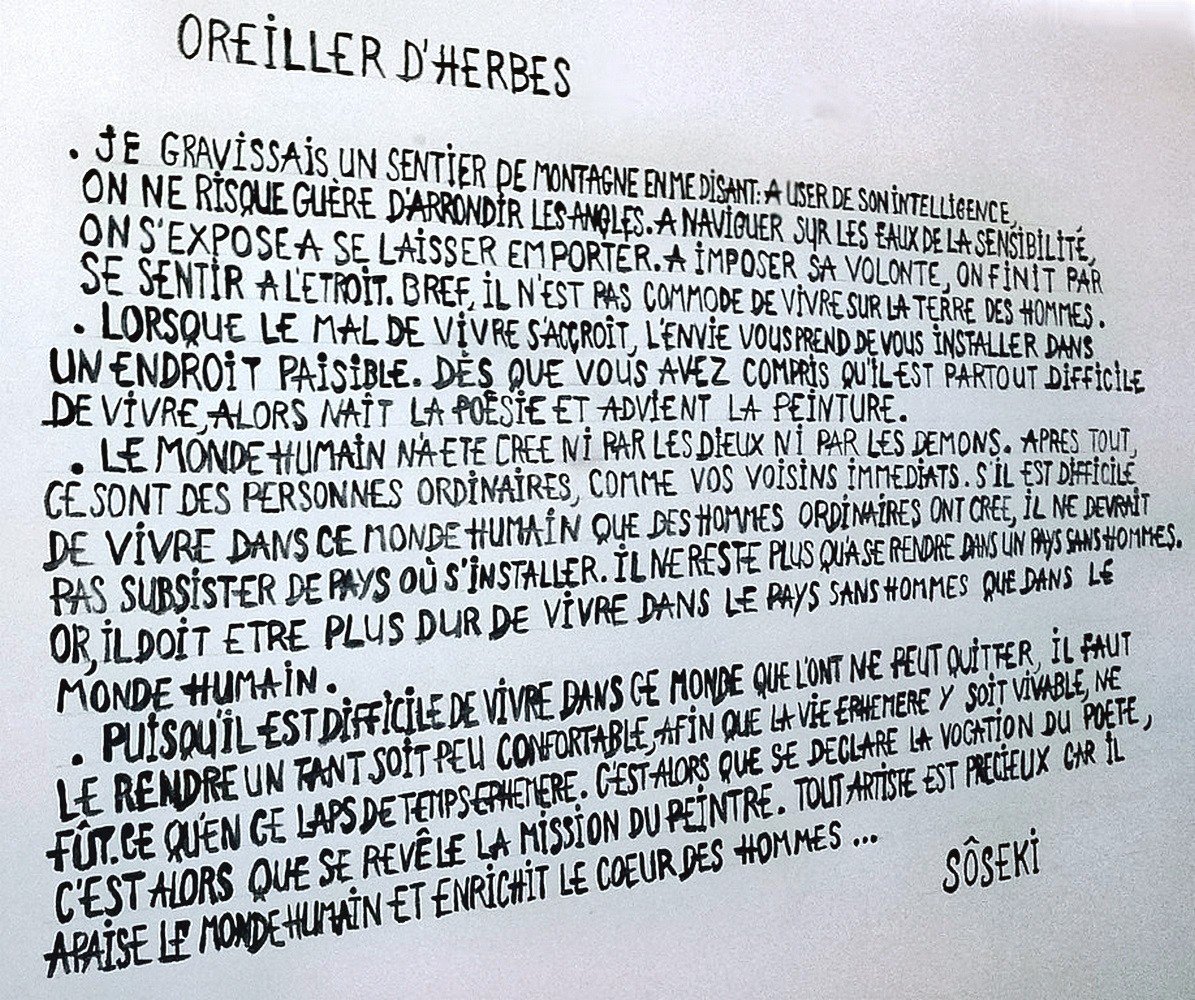 OREILLER D'HERBES
. JE GRAVISSAIS UN SENTIER DE MONTAGNE EN ME DISANT: A USER DE SON INTELLIGENCE,
ON NE RISQUE GUÈRE D'ARRONDIR LES ANGLES. A NAVIGUER SUR LES EAUX DE LA SENSIBILITÉ,
ON S'EXPOSE A SE LAISSER EMPORTER. A IMPOSER SA VOLONTE, ON FINIT PAR
SE SENTIR A L'ETROIT. BREF, IL N'EST PAS COMMODE DE VIVRE SUR LA TERRE DES HOMMES.
. LORSQUE LE MAL DE VIVRE S'ACCROIT, L'ENVIE VOUS PREND DE VOUS INSTALLER DANS
UN ENDROIT PAISIBLE. DÈS QUE VOUS AVEZ COMPRIS QU'IL EST PARTOUT DIFFICILE
DE VIVRE, ALORS NAÎT LA POÉSIE ET ADVIENT LA PEINTURE.
. LE MONDE HUMAIN N'A ETE CREE NI PAR LES DIEUX NI PAR LES DEMONS. APRES TOUT,
CE SONT DES PERSONNES ORDINAIRES, COMME VOS VOISINS IMMEDIATS. S'IL EST DIFFICILE
DE VIVRE DANS CE MONDE HUMAIN QUE DES HOMMES ORDINAIRES ONT CREE, IL NE DEVRAIT
PAS SUBSISTER DE PAYS OÙ S'INSTALLER. IL NE RESTE PLUS QU'A SE RENDRE DANS UN PAYS SANS HOMMES.
OR, IL DOIT ETRE PLUS DUR DE VIVRE DANS LE PAYS SANS HOMMES QUE DANS LE
MONDE HUMAIN.
. PUISQU'IL EST DIFFICILE DE VIVRE DANS CE MONDE QUE L'ONT NE PEUT QUITTER, IL FAUT
LE RENDRE UN TANT SOIT PEU CONFORTABLE, AFIN QUE LA VIE EPHEMERE Y SOIT VIVABLE, NE
FÛT.CE QU'EN CE LAPS DE TEMPS EPHEMERE. C'EST ALORS QUE SE DECLARE LA VOCATION DU POETE,
C'EST ALORS QUE SE REVÊLE LA MISSION DU PEINTRE. TOUT ARTISTE EST PRECIEUX CAR IL
APAISE LE MONDE HUMAIN ET ENRICHIT LE COEUR DES HOMMES ...
SÔSEKI